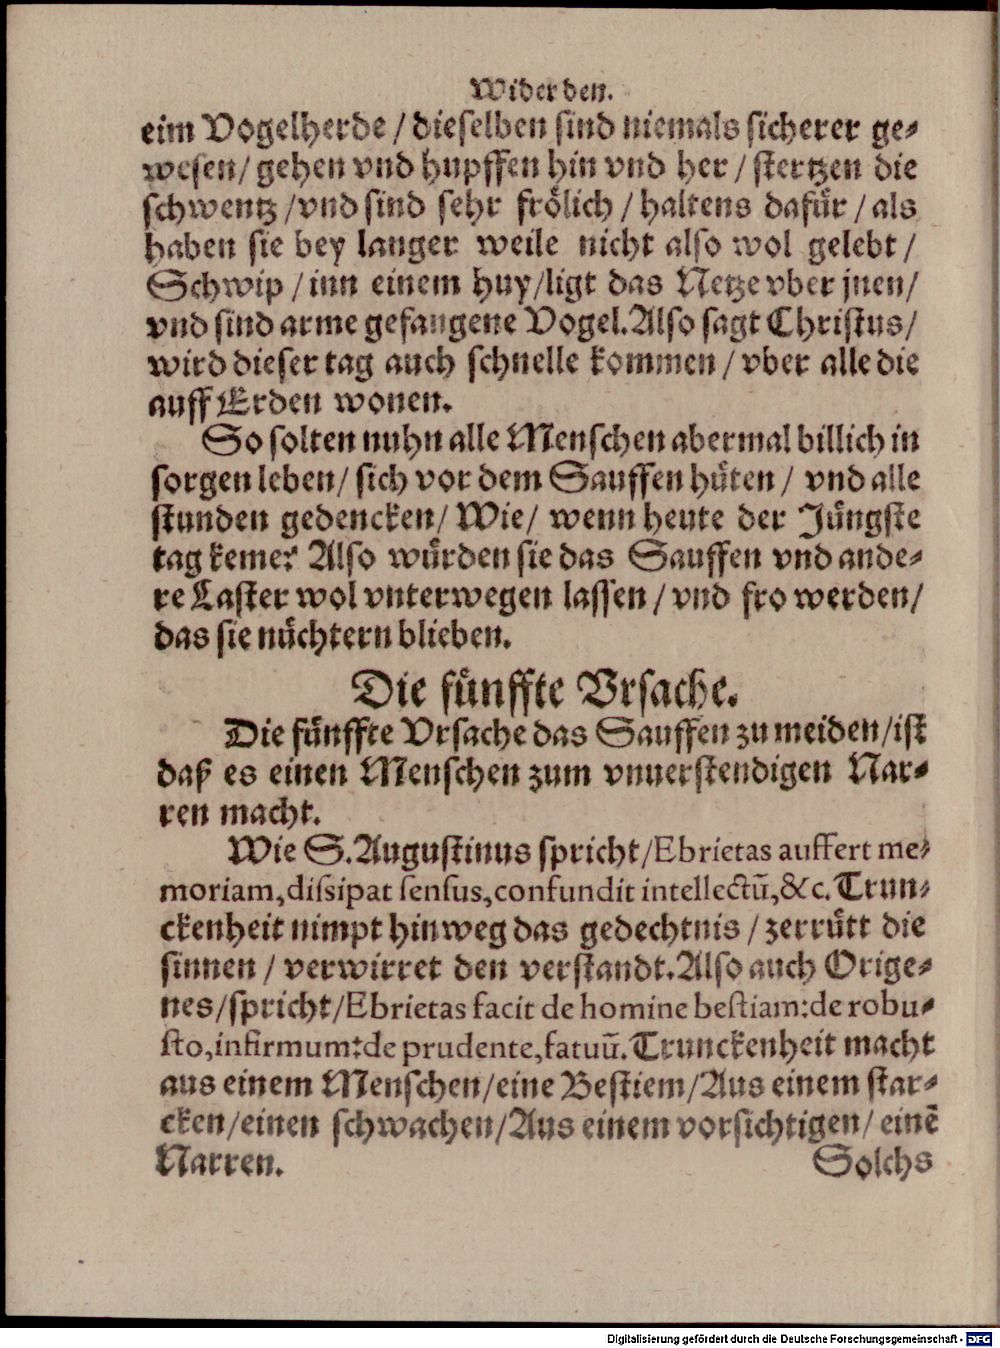 Wider den.
eim Vogelherde / dieselben sind niemals sicherer ge-
wesen / gehen vnd hupffen hin vnd her / stertzen die
schwentz / vnd sind sehr frölich / haltens dafür / als
haben sie bey langer weile nicht also wol gelebt /
Schwip / inn einem huy / ligt das Netze vber jnen /
vnd sind arme gefangene Vogel. Also sagt Christus /
wird dieser tag auch schnelle kommen / vber alle die
auff Erden wonen.
So solten nuhn alle Menschen abermal billich in
sorgen leben / sich vor dem Sauffen hüten / vnd alle
stunden gedencken / Wie / wenn heute der Jüngste
tag keme? Also würden sie das Sauffen vnd ande-
re Laster wol vnterwegen lassen / vnd fro werden /
das sie nüchtern blieben.
Die fünffte Vrsache.
Die fünffte Vrsache das Sauffen zu meiden / ist
daß es einen Menschen zum vnuerstendigen Nar-
ren macht.
Wie S. Augustinus spricht / Ebrietas auffert me-
moriam, dissipat sensus, confundit intellectū, &c. Trun-
ckenheit nimpt hinweg das gedechtnis / zerrütt die
sinnen / verwirret den verstandt. Also auch Orige-
nes / spricht / Ebrietas facit de homine bestiam: de robu-
sto, infirmum: de prudente, fatuū. Trunckenheit macht
aus einem Menschen / eine Bestiem / Aus einem star-
cken / einen schwachen / Aus einem vorsichtigen / einē
Narren.
Solchs
Digitalisierung gefördert durch die Deutsche Forschungsgemeinschaft - DFG